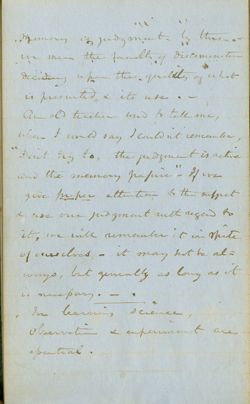 Memory is judgment. By this
we mean the faculty of discrimination
deciding upon the quality of what
is presented, & its use. —
An old teacher used to tell me,
when I would say I couldn't remember,
"Don't try to, the judgment is active
and the memory passive" — If we
give proper attention to the subject
& use our judgment with regard to
it, we will remember it in spite
of ourselves — it may not be al-
ways, but generally as long as it
is necessary. — .
In learning science,
observation & experiment are
essential.